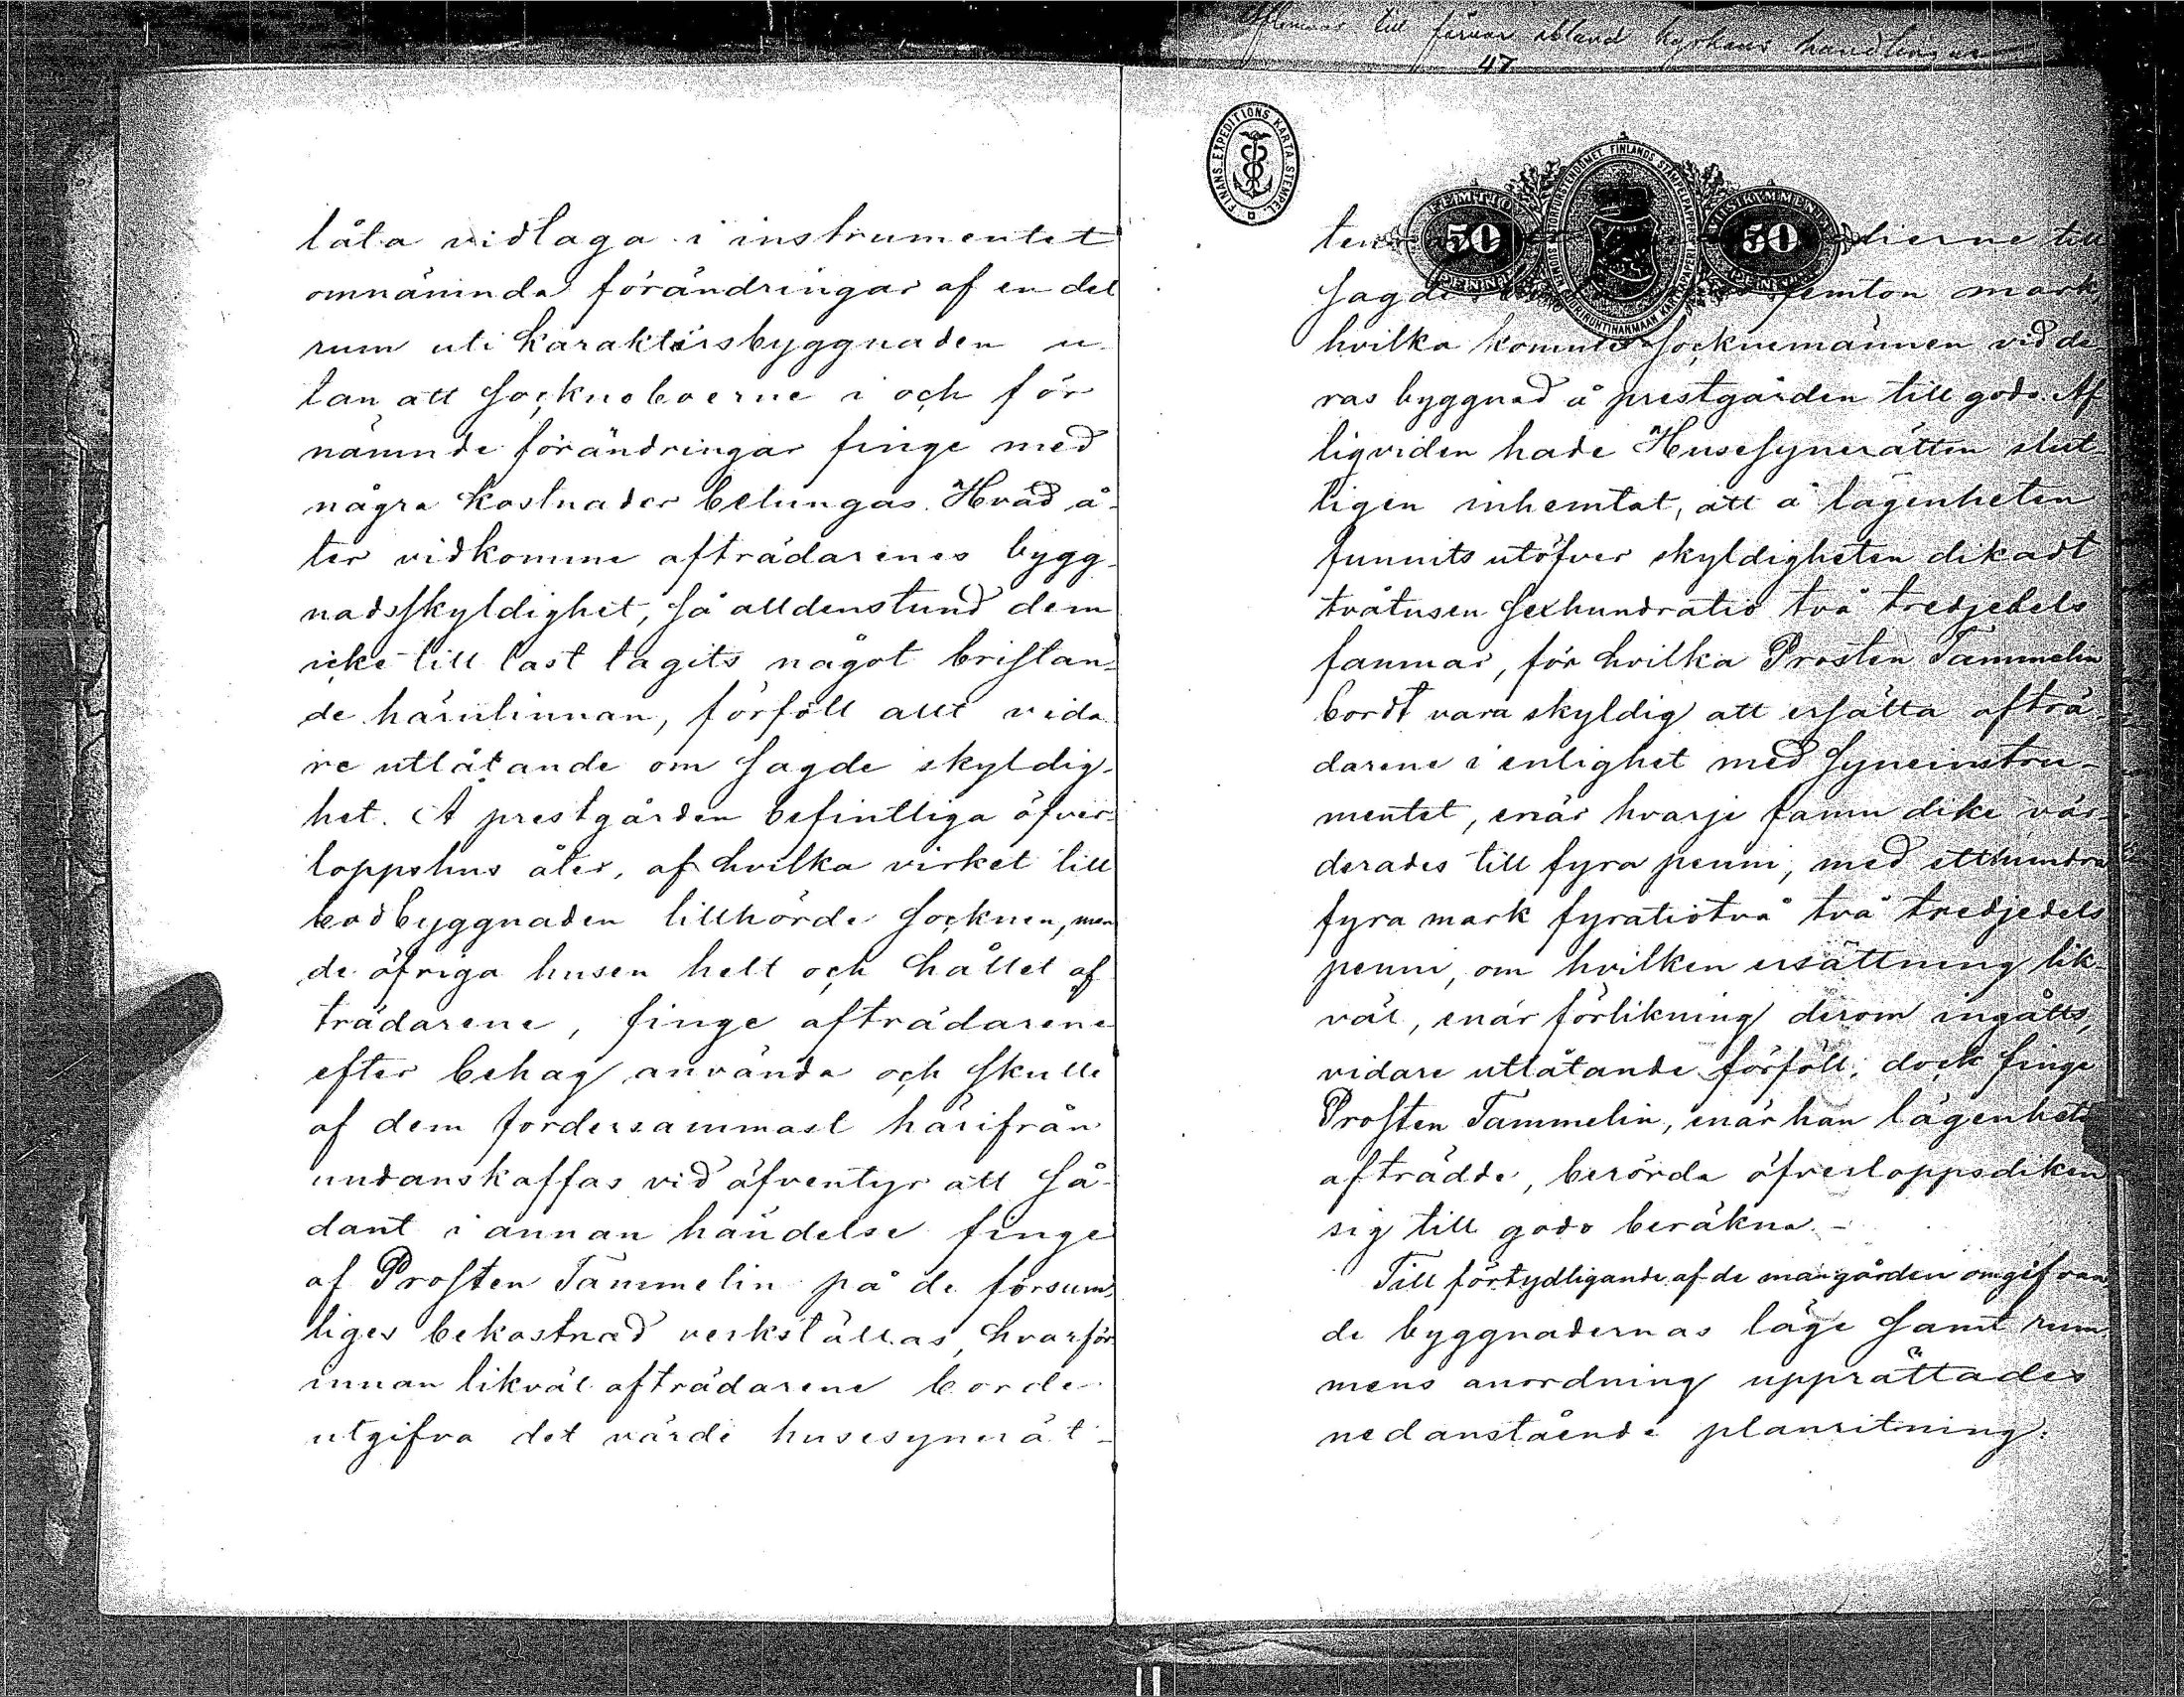 låta vidtaga i instrumentet
omnämnda förändringar af en del
rum uti karaktärsbyggnaden u-
tan att Socknoboerne i och för
nämnde förändringar finge med
några kostnader betungas. Hvad å-
ter vidkomme afträdarenes bygg-
nadsskyldighet, så alldenstund dem
icke till last lagits något bristan-
de härutinnan, förföll allt vida-
re utlåtande om sagde skyldig-
het. Å prestgården befintliga öfver-
loppshus åter, af hvilka virket till
bodbyggnaden tillhörde Socknen, men
de öfriga husen helt och hållet af
trädarene, finge afträdarene
efter behag använda och skulle
af dem fordersammast härifrån
undanskaffas vid äfventyr att så-
dant i annan händelse finge
af Prosten Tammelin på de försum-
liges bekostnad verkställas, hvarför-
innan likväl afträdarene borde
utgifva det värde husesynerät-
Aflemnas till förvar ibland kyrkans handlingar
47
FINANS-EXPEDITIONS KARTA STEMPEL
50 50
ten till
sagde femton mark,
hvilka komme Socknemännen vid de-
ras byggnad å prestgården till godo. Af
liqviden hade Husesynerätten slut-
ligen inhemtat, att å lägenheten
funnits utöfver skyldigheten dikadt
tvåtusen sexhundratio två tredjedels
famnar, för hvilka Prosten Tammelin
bordt vara skyldig att ersätta afträ-
darene i enlighet med syneinstru-
mentet, enär hvarje famn dike vär-
derades till fyra penni, med etthundra
fyra mark fyratiotvå två tredjedels
penni, om hvilken ersättning lik-
väl, enär förlikning derom ingåtts,
vidare utlåtande förföll; dock finge
Prosten Tammelin, enär han lägenhet
afträdde, berörda öfverloppsdiken
sig till godo beräkna. -
Till förtydligande af de mangården omgifvan-
de byggnadernas läge samt rum-
mens anordning upprättades
nedanstående planritning: